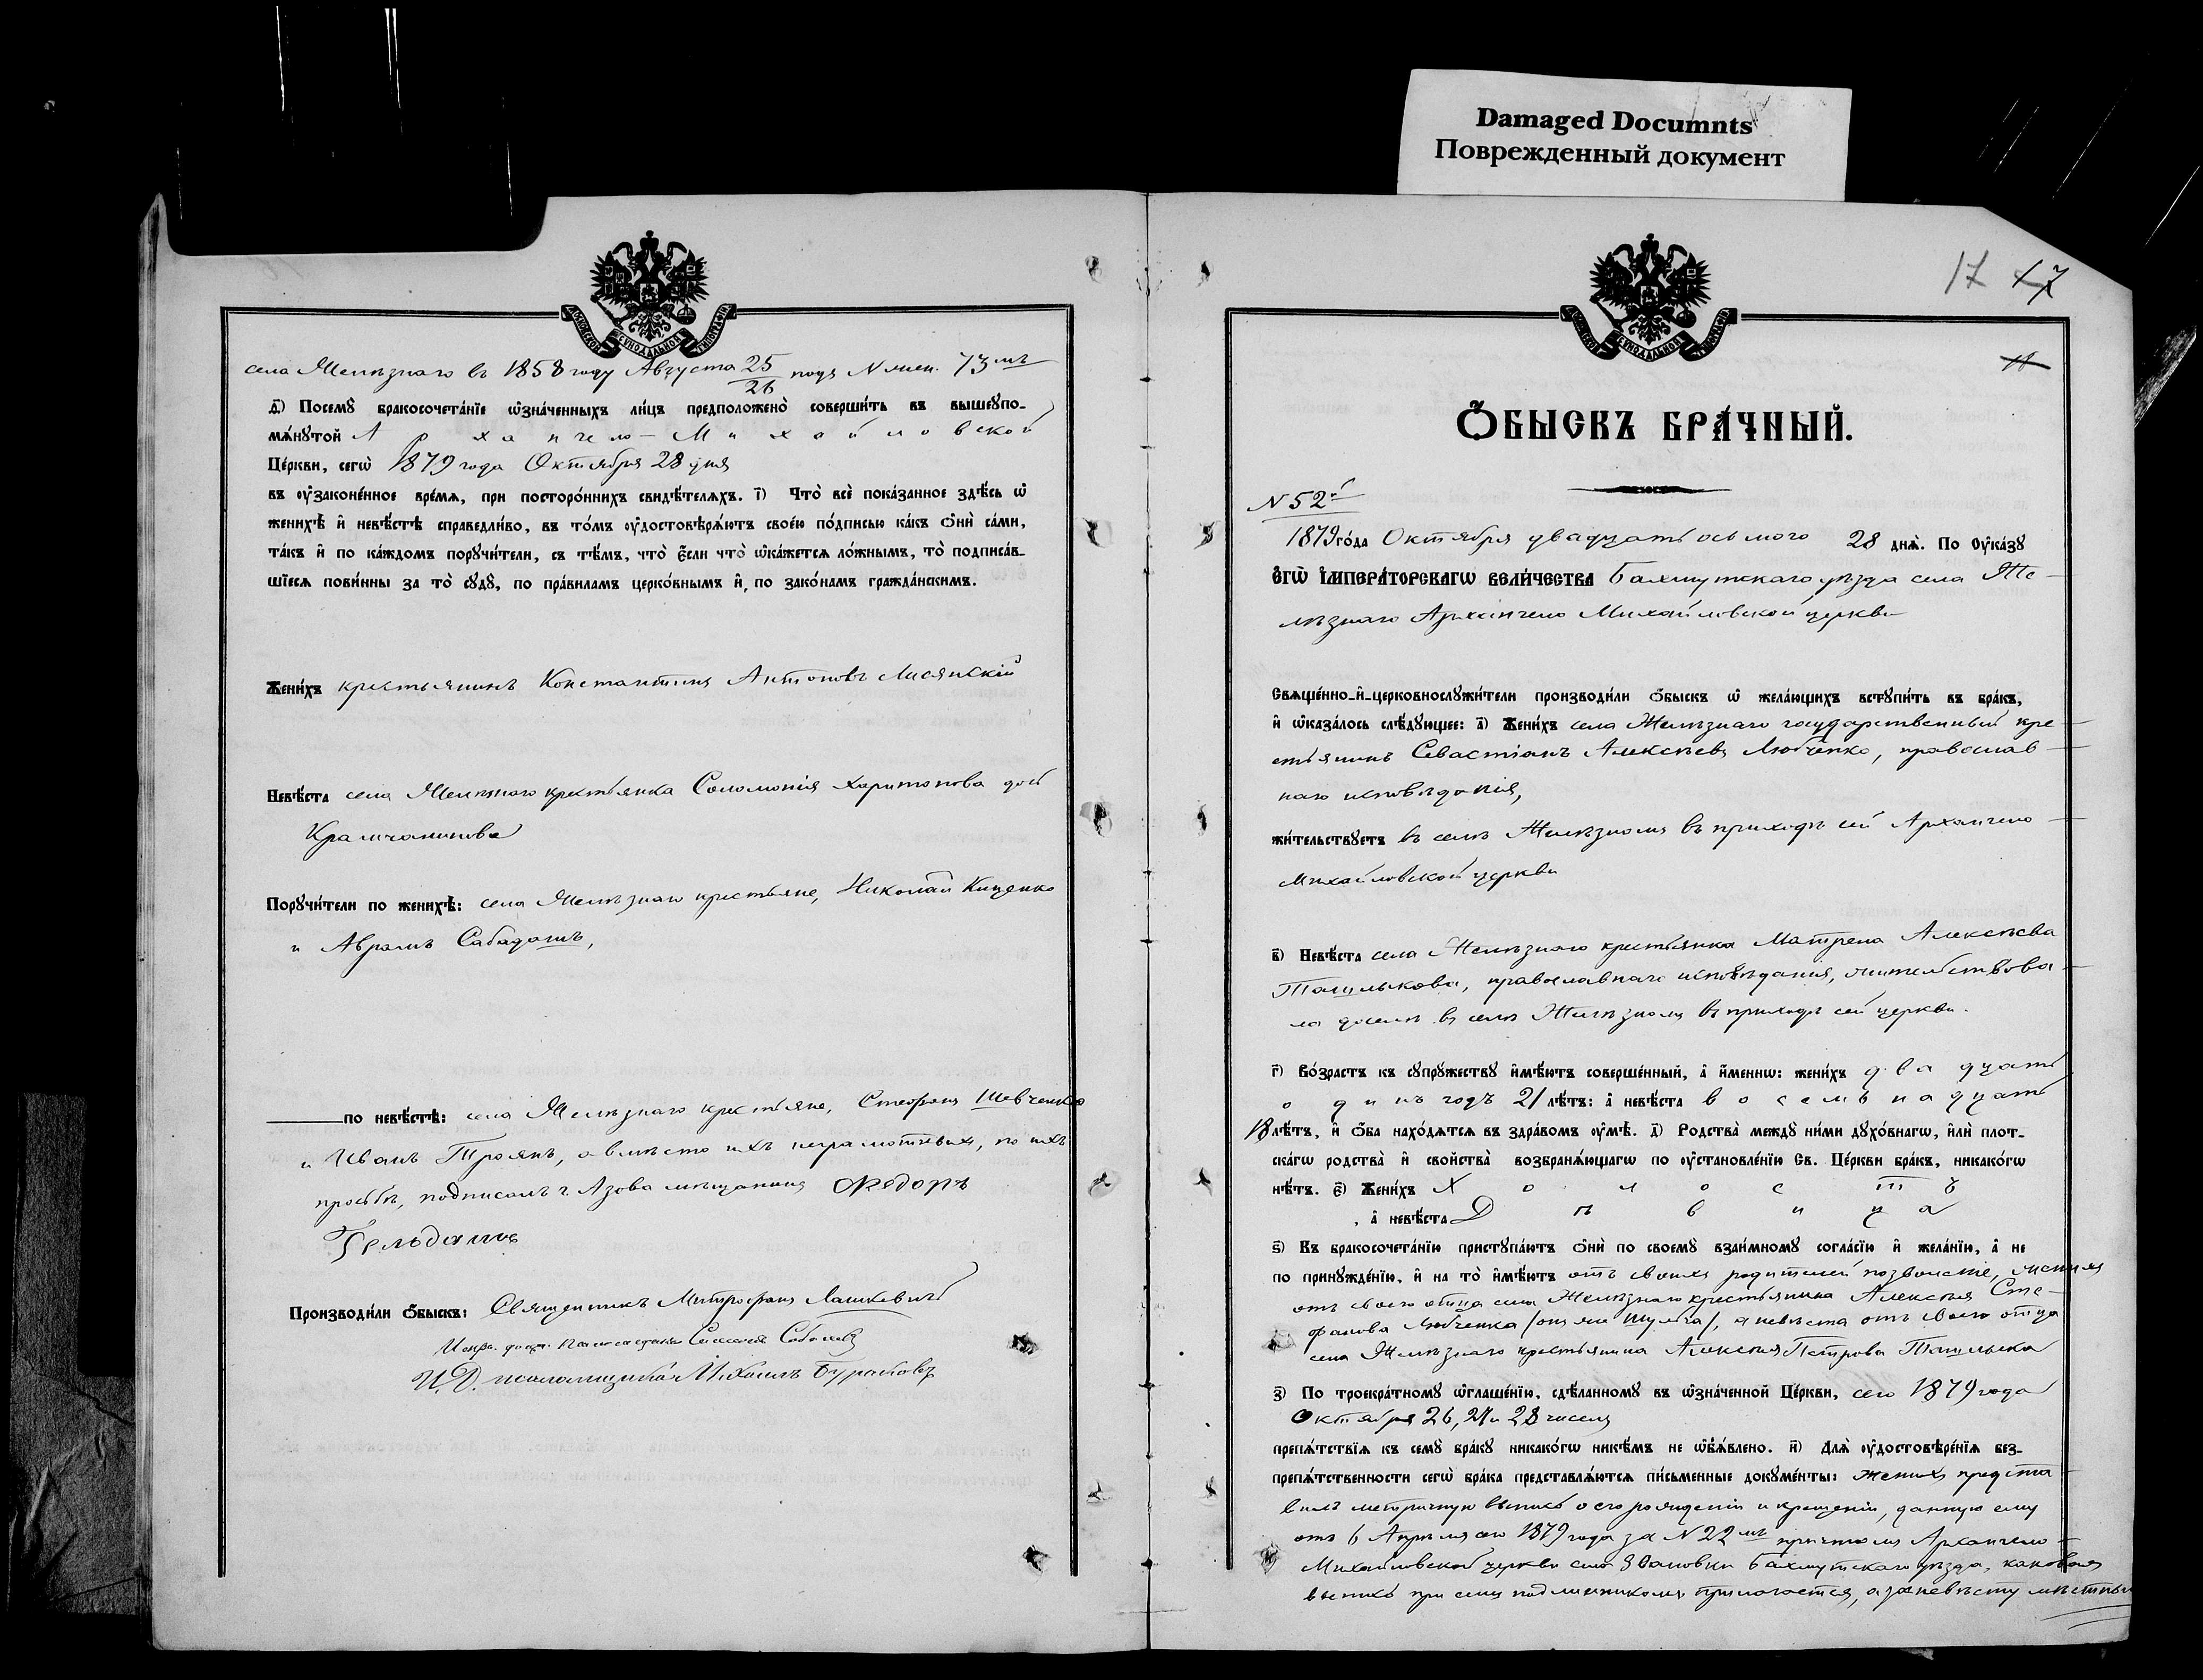 Damaged Documnts
Поврежденный документ
МОСКОВСКОЙ СѴНОДАЛЬНОЙ ТИПОГРАФІИ
села Желѣзнаго въ 1858 году Августа 25/26 подъ № жен. 73мъ
д҃) Посемꙋ̀ бракосочета́нїе ѡ҆зна́ченныхъ ли́цъ предположено̀ соверши́ть въ вышеꙋпо-
мѧ́нꙋтой Архангело-Михайловской
Це́ркви, сегѡ̀ 1879 года Октября 28 дня
въ ᲂу҆зако́ненное вре́мѧ, при посторо́ннихъ свидѣ́телѧхъ. і҃) Что̀ всѐ пока́занное здѣ́сь ѡ҆
женихѣ̀ и҆ невѣ́стѣ справедли́во, въ то́мъ ᲂу҆достовѣрѧ́ютъ свое́ю по́дписью ка́къ ѻ҆нѝ са́ми,
та́къ и҆ по ка́ждомъ порꙋчи́тели, съ тѣ́мъ, что̀ є҆́сли что̀ ѡ҆ка́жетсѧ ло́жнымъ, то̀ подписа́в-
шїесѧ пови́нны за то̀ сꙋдꙋ̀, по пра́виламъ церко́внымъ и҆, по зако́намъ гражда́нскимъ.
Жени́хъ крестьянинъ Константинъ Антоновъ Лисянскій
Невѣ́ста села Желѣзнаго крестьянка Соломонія Харитонова дочь
Крамчанинова
Порꙋчи́тели по женихѣ̀: села Желѣзнаго крестьяне, Николай Кищенко
и Аврамъ Сабадашъ,
по невѣ́стѣ: села Желѣзнаго крестьяне, Стефанъ Шевченко
и Иванъ Троянъ, а вмѣсто ихъ неграмотныхъ, по ихъ
прозьбѣ, подписалъ г. Азова мѣщанинъ Федоръ
Производи́ли ѻ҆́быскъ: Священникъ Митрофанъ Лашкевичъ
Испр. долж. Псаломщика Соболевъ
И. Д. псаломщика Михаилъ Бураковъ
17 17
11
МОСКОВСКОЙ СѴНОДАЛЬНОЙ ТИПОГРАФІИ
Ѻ҆БЫСКЪ БРА́ЧНЫЙ.
№ 52й
1879 го́да Октября двадцать осьмого 28 днѧ̀. По ᲂу҆ка́зꙋ
Є҆ГѠ̀ И҆МПЕРА́ТОРСКАГѠ ВЕЛИ́ЧЕСТВА Бахмутскаго уѣзда села Же-
лѣзнаго Архангело Михайловской церкви
Свѧще́нно-и҆-церковнослꙋжи́тели производи́ли ѻ҆́быскъ ѡ҆ жела́ющихъ встꙋпи́ть въ бра́къ,
и҆ ѡ҆каза́лось слѣ́дꙋющее: а҃) Жени́хъ села Желѣзнаго государственный кре-
стьянинъ Севастіанъ Алексѣевъ Любченко, православ-
наго исповѣданія,
жи́тельствꙋетъ въ селѣ Желѣзномъ въ приходѣ сей Архангело-
Михайловской церкви
в҃) Невѣ́ста села Желѣзнаго крестьянка Матрена Алексѣева
Ташлыкова, православнаго исповѣданія, жительствова-
ла доселѣ въ селѣ Желѣзномъ въ приходѣ сей церкви.
г҃) Во́зрастъ къ сꙋпрꙋ́жествꙋ и҆мѣ́ютъ соверше́нный, а҆ и҆́меннѡ: жени́хъ двадцать
одинъ годъ 21 лѣ́тъ: а҆ невѣ́ста восемьнадцать
18 лѣ́тъ, и҆ ѻ҆́ба нахо́дѧтсѧ въ здра́вомъ ᲂу҆мѣ̀. д҃) Родства̀ междꙋ̀ ни́ми дꙋхо́внагѡ, и҆лѝ плот-
ска́гѡ родства̀ и҆ свойства̀ возбранѧ́ющагѡ по ᲂу҆становле́нїю Св. Це́ркви бра́къ, никако́гѡ
нѣ́тъ. є҃) Жени́хъ Холостъ
, а҆ невѣ́ста Дѣвица
ѕ҃) Въ бракосочета́нїю пристꙋпа́ютъ ѻ҆нѝ по своемꙋ̀ взаи́мномꙋ согла́сїю и҆ жела́нїю, а҆ не
по принꙋжде́нїю, и҆ на то̀ и҆мѣ́ютъ отъ своихъ родителей позволеніе, женихъ
отъ своего отца села Желѣзнаго крестьянина Алексѣя Сте-
фанова Любченка /онъ же Шульга/, а невѣста отъ своего отца
села Желѣзнаго крестьянина Алексѣя Петрова Ташлыка
з҃) По троекра́тномꙋ ѡ҆глаше́нїю, сдѣ́ланномꙋ въ ѡ҆зна́ченной Це́ркви, сего 1879 года
Октября 26, 27 и 28 чиселъ
препѧ́тствїѧ къ семꙋ̀ бра́кꙋ никако́гѡ никѣ́мъ не ѡ҆б̾ѧ́влено. и҃) Длѧ̀ ᲂу҆достовѣре́нїѧ без-
препѧ́тственности сегѡ̀ бра́ка представлѧ́ютсѧ пи́сьменные докꙋме́нты: женихъ предста-
вилъ метричную выпись о его рожденіи и крещеніи, данную ему
отъ 6 Апрѣля сего 1879 года за № 22мъ причтомъ Архангело-
Михайловской церкви села Звановки Бахмутскаго уѣзда, каковая
выпись при семъ подлинникомъ прилагается, а за невѣсту мѣстный